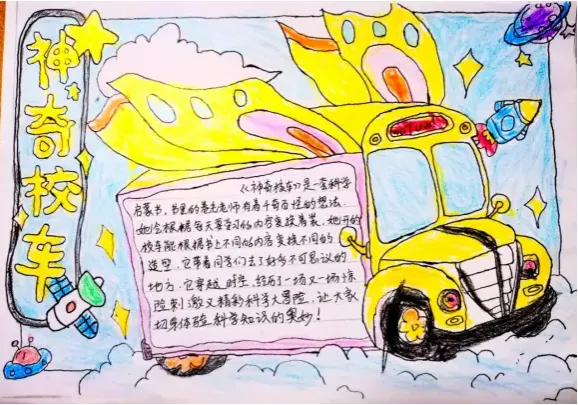 神奇校车
《神奇校车》是一套科学
启蒙书,书里的卷老师有着千奇百怪的想法.
她会根据每天学习的内容变换着装,她开的
校车能根据书上不同的内容变换不同的
造型.它带着同学们去了好多不可思议的
地方.它穿越时空,经历了一场又一场惊
险刺激又精彩科学大冒险,让大家
切身体验科学知识的奥妙!